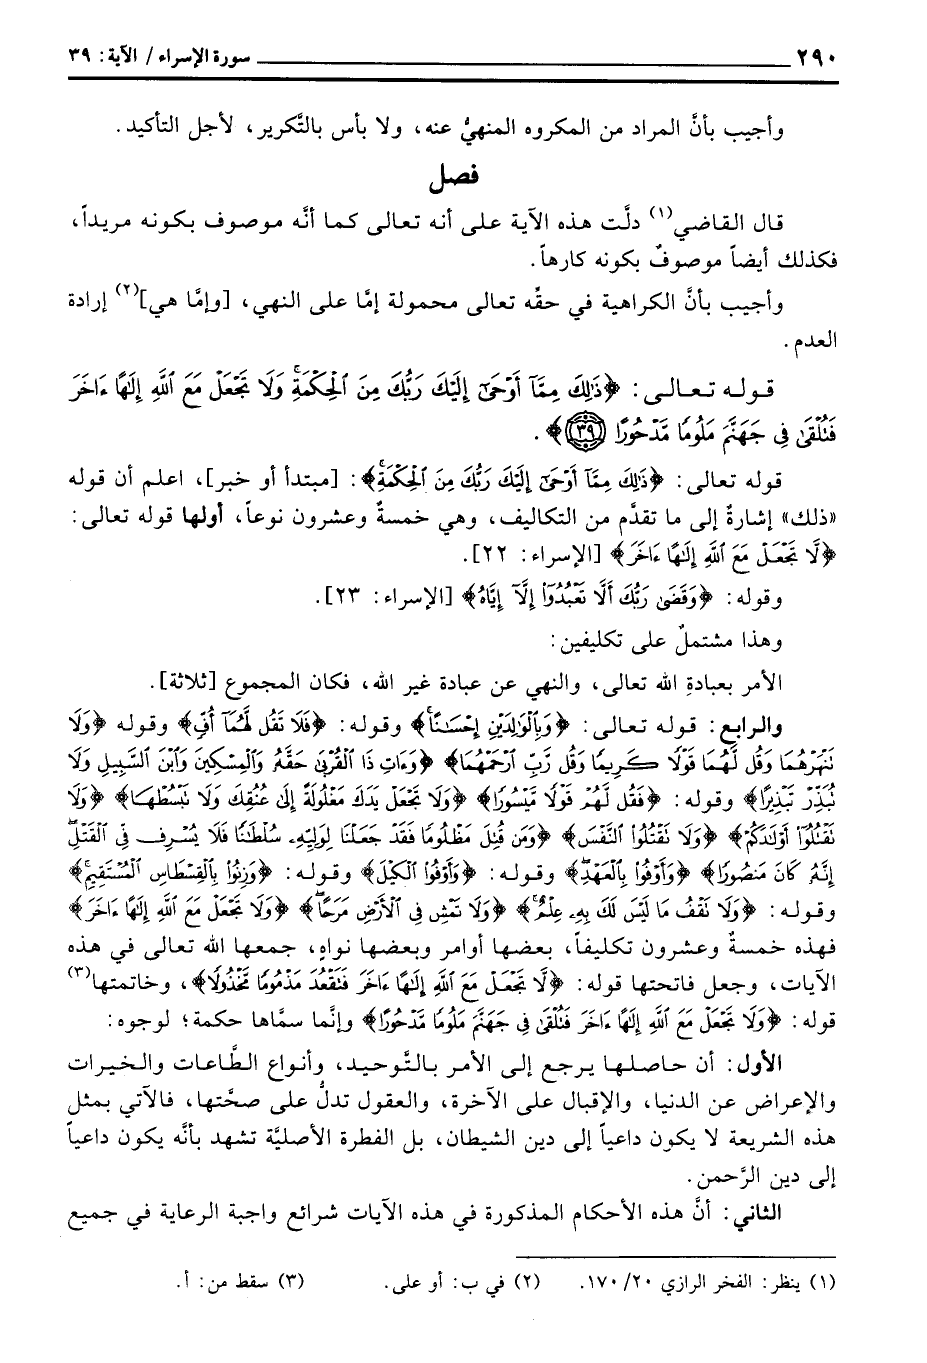 ٢٩٠ سورة الإسراء / الآية: ٣٩
وأجيب بأنَّ المراد من المكروه المنهيُّ عنه، ولا بأس بالتَّكرير، لأجل التأكيد.
فصل
قال القاضي(١) دلَّت هذه الآية على أنه تعالى كما أنَّه موصوف بكونه مريداً،
فكذلك أيضاً موصوفٌ بكونه كارهاً.
وأجيب بأنَّ الكراهية في حقِّه تعالى محمولة إمَّا على النهي، [وإمَّا هي](٢) إرادة
العدم.
قوله تعالى: ﴿ذَٰلِكَ مِمَّآ أَوْحَىٰٓ إِلَيْكَ رَبُّكَ مِنَ ٱلْحِكْمَةِۗ وَلَا تَجْعَلْ مَعَ ٱللَّهِ إِلَٰهًا ءَاخَرَ
فَتُلْقَىٰ فِى جَهَنَّمَ مَلُومًا مَّدْحُورًا ٣٩﴾.
قوله تعالى: ﴿ذَٰلِكَ مِمَّآ أَوْحَىٰٓ إِلَيْكَ رَبُّكَ مِنَ ٱلْحِكْمَةِۗ﴾: [مبتدأ أو خبر]، اعلم أن قوله
«ذلك» إشارةٌ إلى ما تقدَّم من التكاليف، وهي خمسةٌ وعشرون نوعاً، أولها قوله تعالى:
﴿لَّا تَجْعَلْ مَعَ ٱللَّهِ إِلَٰهًا ءَاخَرَ﴾ [الإسراء: ٢٢].
وقوله: ﴿وَقَضَىٰ رَبُّكَ أَلَّا تَعْبُدُوٓا۟ إِلَّآ إِيَّاهُ﴾ [الإسراء: ٢٣].
وهذا مشتملٌ على تكليفين:
الأمر بعبادة الله تعالى، والنهي عن عبادة غير الله، فكان المجموع [ثلاثة].
والرابع: قوله تعالى: ﴿وَبِٱلْوَٰلِدَيْنِ إِحْسَٰنًاۚ﴾ وقوله: ﴿فَلَا تَقُل لَّهُمَآ أُفٍّ﴾ وقوله ﴿وَلَا
نَنْهَرْهُمَا وَقُل لَّهُمَا قَوْلًا كَرِيمًا وَقُل رَّبِّ ٱرْحَمْهُمَا﴾ ﴿وَءَاتِ ذَا ٱلْقُرْبَىٰ حَقَّهُۥ وَٱلْمِسْكِينَ وَٱبْنَ ٱلسَّبِيلِ وَلَا
تُبَذِّرْ تَبْذِيرًا﴾ وقوله: ﴿فَقُل لَّهُمْ قَوْلًا مَّيْسُورًا﴾ ﴿وَلَا تَجْعَلْ يَدَكَ مَغْلُولَةً إِلَىٰ عُنُقِكَ وَلَا تَبْسُطْهَا﴾ ﴿وَلَا
تَقْتُلُوٓا۟ أَوْلَٰدَكُمْ﴾ ﴿وَلَا تَقْتُلُوا۟ ٱلنَّفْسَ﴾ ﴿وَمَن قُتِلَ مَظْلُومًا فَقَدْ جَعَلْنَا لِوَلِيِّهِۦ سُلْطَٰنًا فَلَا يُسْرِف فِّى ٱلْقَتْلِۖ
إِنَّهُۥ كَانَ مَنصُورًا﴾ ﴿وَأَوْفُوا۟ بِٱلْعَهْدِۖ﴾ وقوله: ﴿وَأَوْفُوا۟ ٱلْكَيْلَ﴾ وقوله: ﴿وَزِنُوا۟ بِٱلْقِسْطَاسِ ٱلْمُسْتَقِيمِۚ﴾
وقوله: ﴿وَلَا تَقْفُ مَا لَيْسَ لَكَ بِهِۦ عِلْمٌۚ﴾ ﴿وَلَا تَمْشِ فِى ٱلْأَرْضِ مَرَحًاۖ﴾ ﴿وَلَا تَجْعَلْ مَعَ ٱللَّهِ إِلَٰهًا ءَاخَرَ﴾
فهذه خمسةٌ وعشرون تكليفاً، بعضها أوامر وبعضها نواهٍ، جمعها الله تعالى في هذه
الآيات، وجعل فاتحتها قوله: ﴿لَّا تَجْعَلْ مَعَ ٱللَّهِ إِلَٰهًا ءَاخَرَ فَتَقْعُدَ مَذْمُومًا مَّخْذُولًا﴾، وخاتمتها(٣)
قوله: ﴿وَلَا تَجْعَلْ مَعَ ٱللَّهِ إِلَٰهًا ءَاخَرَ فَتُلْقَىٰ فِى جَهَنَّمَ مَلُومًا مَّدْحُورًا﴾ وإنَّما سمَّاها حكمة؛ لوجوه:
الأول: أن حاصلها يرجع إلى الأمر بالتَّوحيد، وأنواع الطَّاعات والخيرات
والإعراض عن الدنيا، والإقبال على الآخرة، والعقول تدلُّ على صحَّتها، فالآتي بمثل
هذه الشريعة لا يكون داعياً إلى دين الشيطان، بل الفطرة الأصليَّة تشهد بأنَّه يكون داعياً
إلى دين الرَّحمن.
الثاني: أنَّ هذه الأحكام المذكورة في هذه الآيات شرائع واجبة الرعاية في جميع
(١) ينظر: الفخر الرازي ٢٠/ ١٧٠. (٢) في ب: أو على. (٣) سقط من: أ.